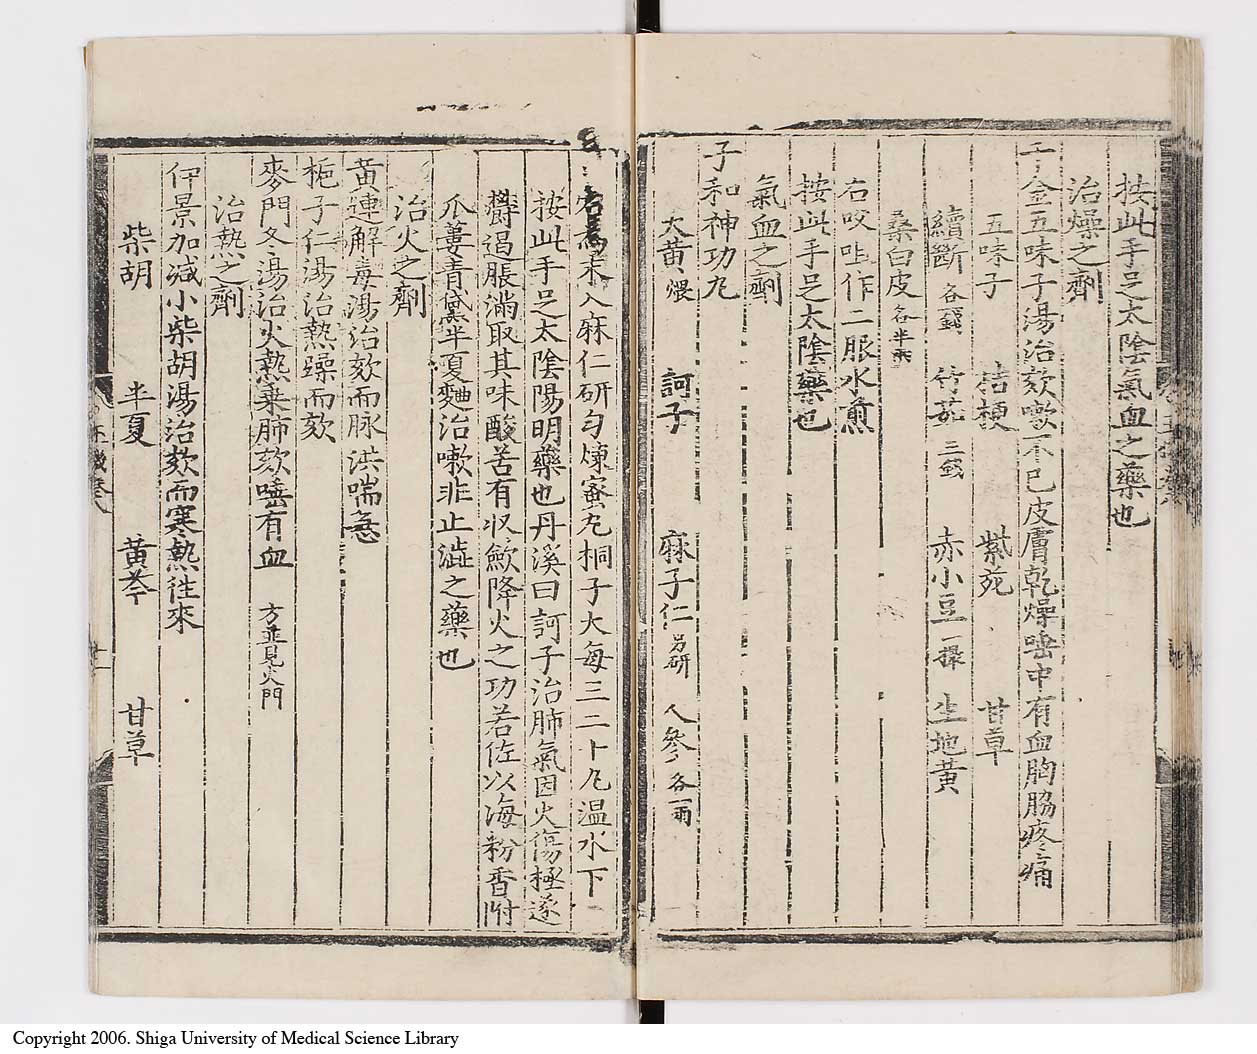 按此手足太陰氣血之藥也
治燥之劑
千金五味子湯治欬嗽不已皮膚乾燥唾中有血胸脇疼痛
五味子 桔梗 紫菀 甘草
續斷各一錢 竹茹三錢 赤小豆一撮 生地黃
桑白皮各半兩
右㕮咀作二服水煎
按此手足太陰藥也
氣血之劑
子和神功丸
大黃煨 訶子 麻子仁另研 人參各一兩
右為末入麻仁研勻煉蜜丸桐子大每三二十丸温水下
按此手足太陰陽明藥也丹溪曰訶子治肺氣因火傷極遂
欝遏脹滿取其味酸苦有收歛降火之功若佐以海粉香附
瓜蔞青黛半夏麯治嗽非止澁之藥也
治火之劑
黃連解毒湯治欬而脉洪喘急
梔子仁湯治熱躁而欬
麥門冬湯治火熱乗肺欬唾有血 方並見火門
治熱之劑
伊景加減小柴胡湯治欬而寒熱徃來
柴胡 半夏 黃芩 甘草
Copyright 2006. Shiga University of Medical Science Library